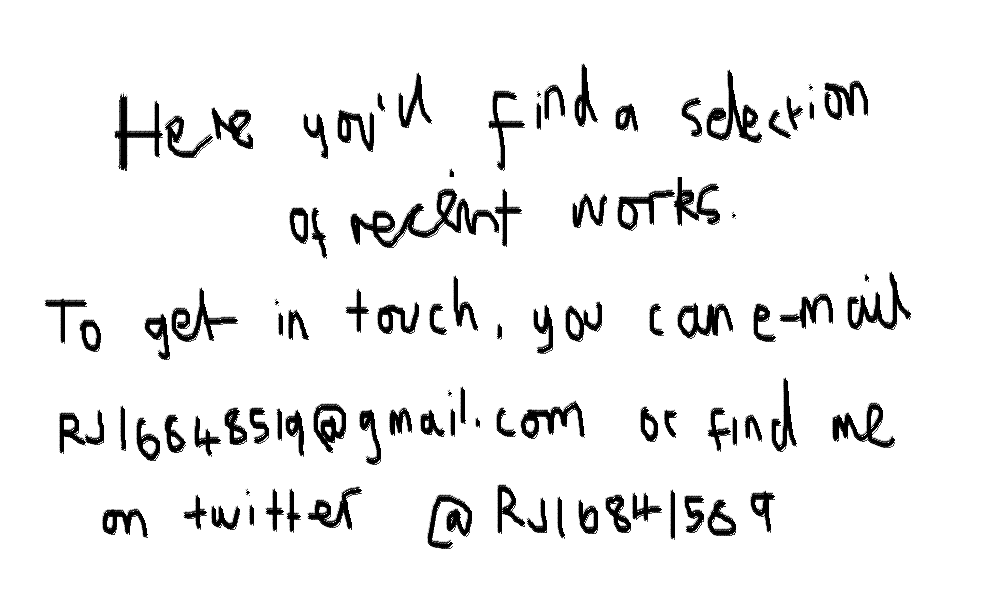 Here you'll find a selection
of recent works.
To get in touch, you can e-mail
RJ16648519@gmail.com or find me
on twitter @RJ16841569